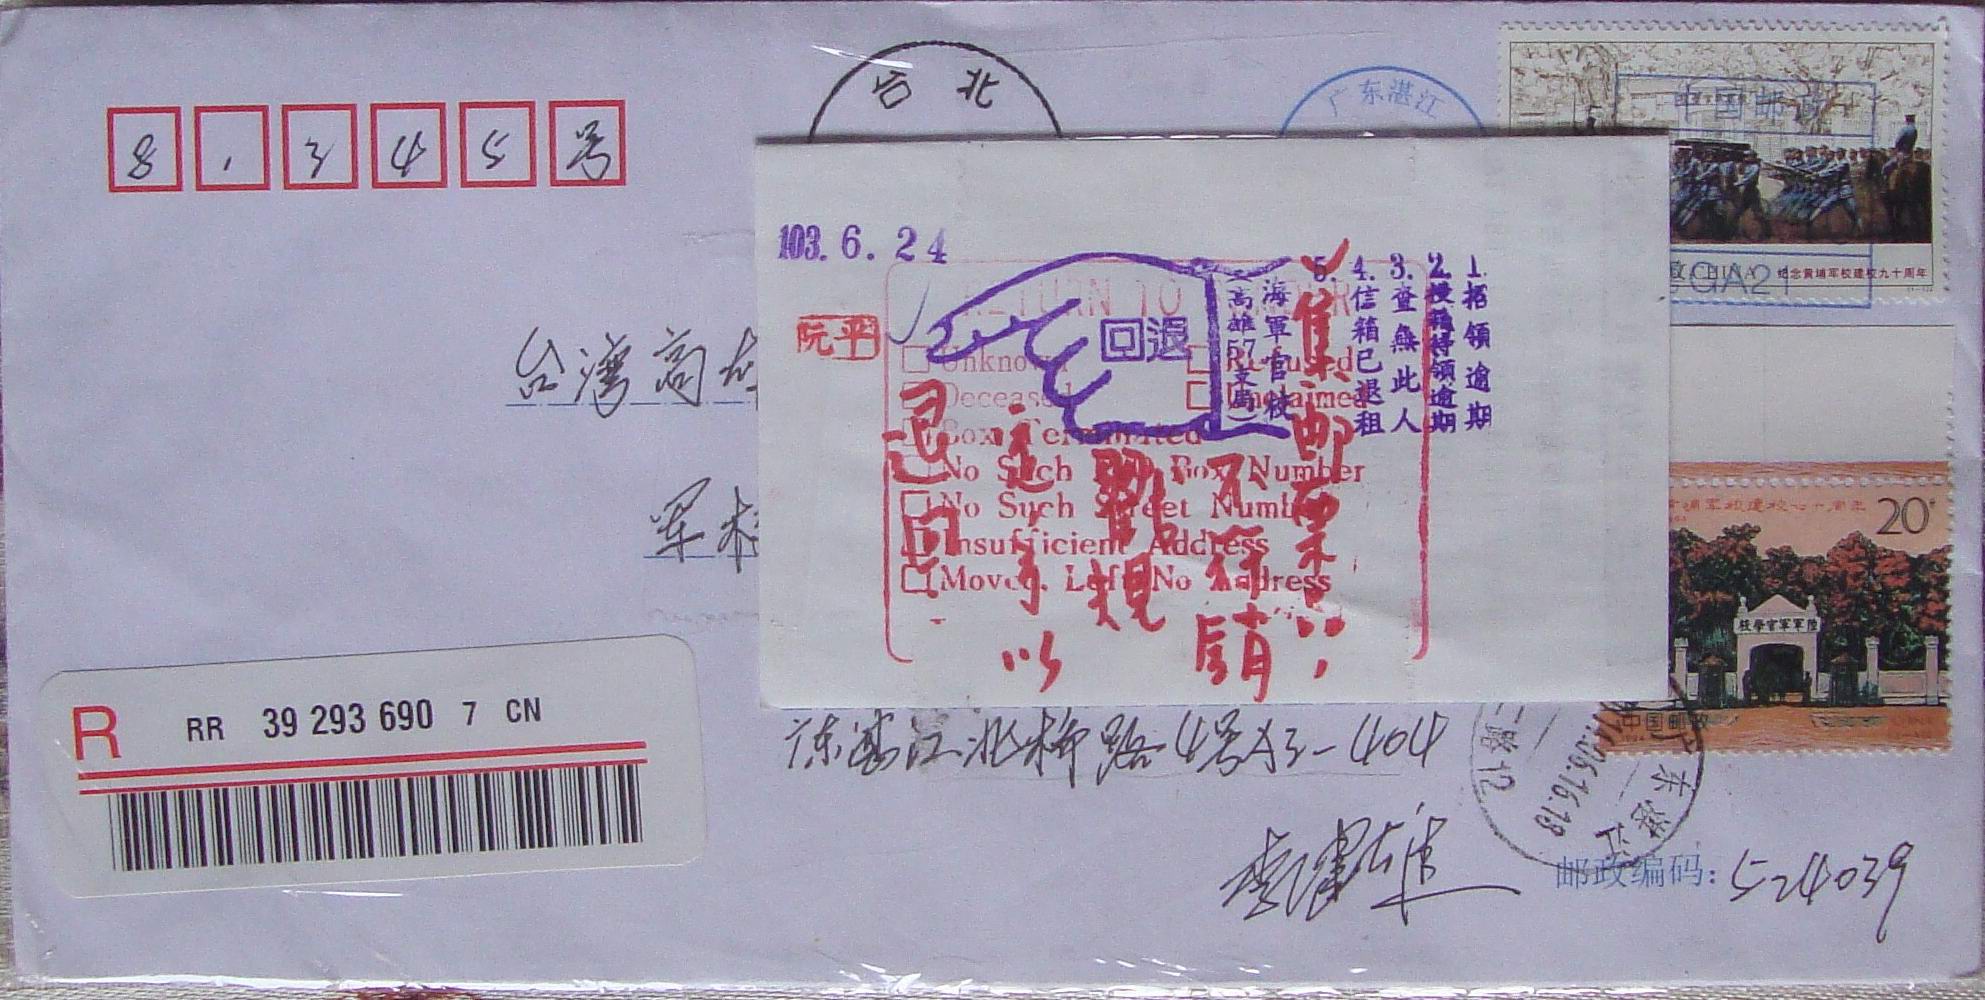 台北
广东湛江
中国邮政
8 1 3 4 5 号
CHINA
纪念黄埔军校建校九十周年
103. 6. 24
1. 招領逾期
2. 投籍待領逾期
3. 查無此人
4. 信箱已退租
5.
海軍官校
(高雄57支局)
退回
阮平
RETURN TO
Unknown
Refused
Deceased
Unclaimed
Box Terminated
No Such Box Number
No Such Street Number
Insufficient Address
Moved, Left No Address
集邮票
不符
規
予以
退回
台湾高雄
军校
20
陸軍軍官學校
中国邮政
R
RR 39 293 690 7 CN
广东湛江北桥路4号A3-404
广东湛江
邮政编码: 524039